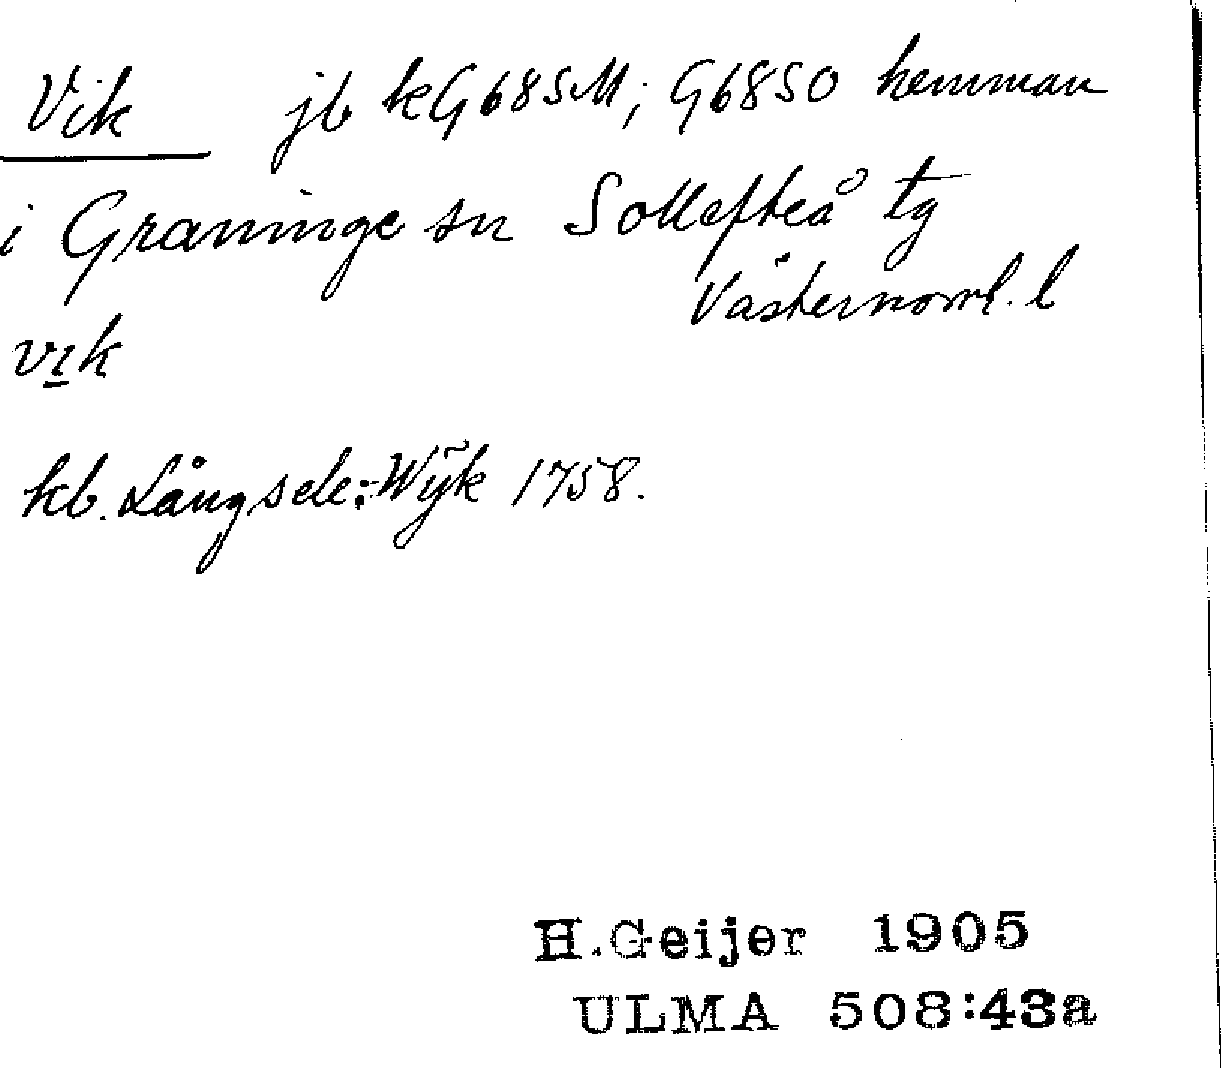 Vik jb kG68SM; G68SO hemman
i Graninge sn Sollefteå tg
Västernorrl. l
vık
kb. Långsele: Wÿk 1758.
H.Geijer 1905
ULMA 508:43a